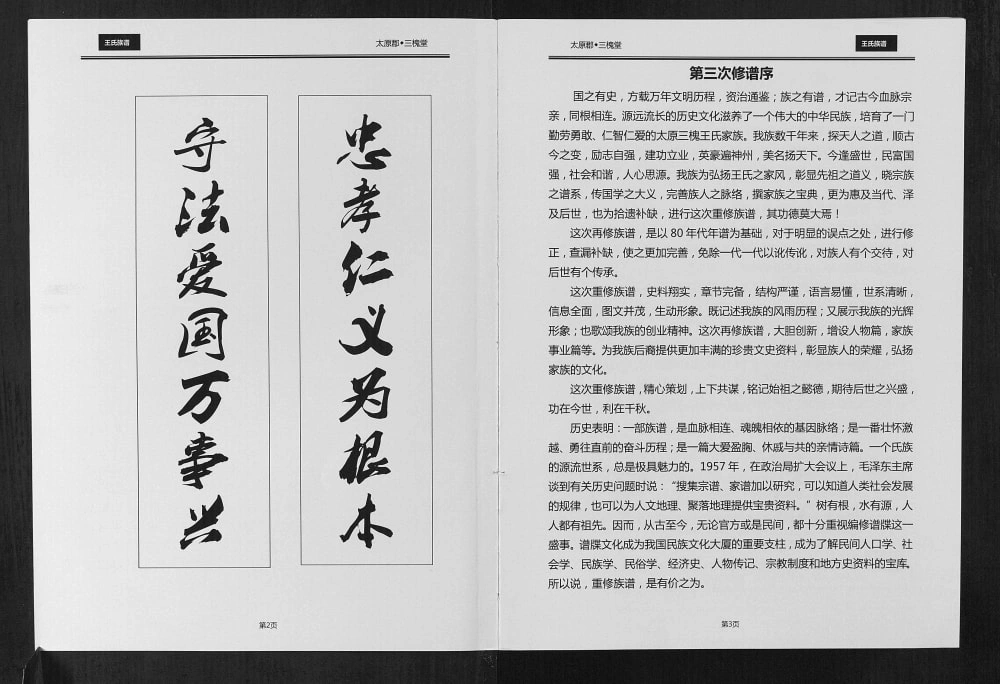 王氏族谱
太原郡•三槐堂
忠孝仁义为根本
守法爱国万事兴
第2页
太原郡•三槐堂
王氏族谱
第三次修谱序
国之有史，方载万年文明历程，资治通鉴；族之有谱，才记古今血脉宗
亲，同根相连。源远流长的历史文化滋养了一个伟大的中华民族，培育了一门
勤劳勇敢、仁智仁爱的太原三槐王氏家族。我族数千年来，探天人之道，顺古
今之变，励志自强，建功立业，英豪遍神州，美名扬天下。今逢盛世，民富国
强，社会和谐，人心思源。我族为弘扬王氏之家风，彰显先祖之道义，晓宗族
之谱系，传国学之大义，完善族人之脉络，撰家族之宝典，更为惠及当代、泽
及后世，也为拾遗补缺，进行这次重修族谱，其功德莫大焉！
这次再修族谱，是以80年代年谱为基础，对于明显的误点之处，进行修
正，查漏补缺，使之更加完善，免除一代一代以讹传讹，对族人有个交待，对
后世有个传承。
这次重修族谱，史料翔实，章节完备，结构严谨，语言易懂，世系清晰，
信息全面，图文并茂，生动形象。既记述我族的风雨历程；又展示我族的光辉
形象；也歌颂我族的创业精神。这次再修族谱，大胆创新，增设人物篇，家族
事业篇等。为我族后裔提供更加丰满的珍贵文史资料，彰显族人的荣耀，弘扬
家族的文化。
这次重修族谱，精心策划，上下共谋，铭记始祖之懿德，期待后世之兴盛，
功在今世，利在千秋。
历史表明：一部族谱，是血脉相连、魂魄相依的基因脉络；是一番壮怀激
越、勇往直前的奋斗历程；是一篇大爱盈胸、休戚与共的亲情诗篇。一个氏族
的源流世系，总是极具魅力的。1957年，在政治局扩大会议上，毛泽东主席
谈到有关历史问题时说：“搜集宗谱、家谱加以研究，可以知道人类社会发展
的规律，也可以为人文地理、聚落地理提供宝贵资料。”树有根，水有源，人
人都有祖先。因而，从古至今，无论官方或是民间，都十分重视编修谱牒这一
盛事。谱牒文化成为我国民族文化大厦的重要支柱，成为了解民间人口学、社
会学、民族学、民俗学、经济史、人物传记、宗教制度和地方史资料的宝库。
所以说，重修族谱，是有价之为。
第3页